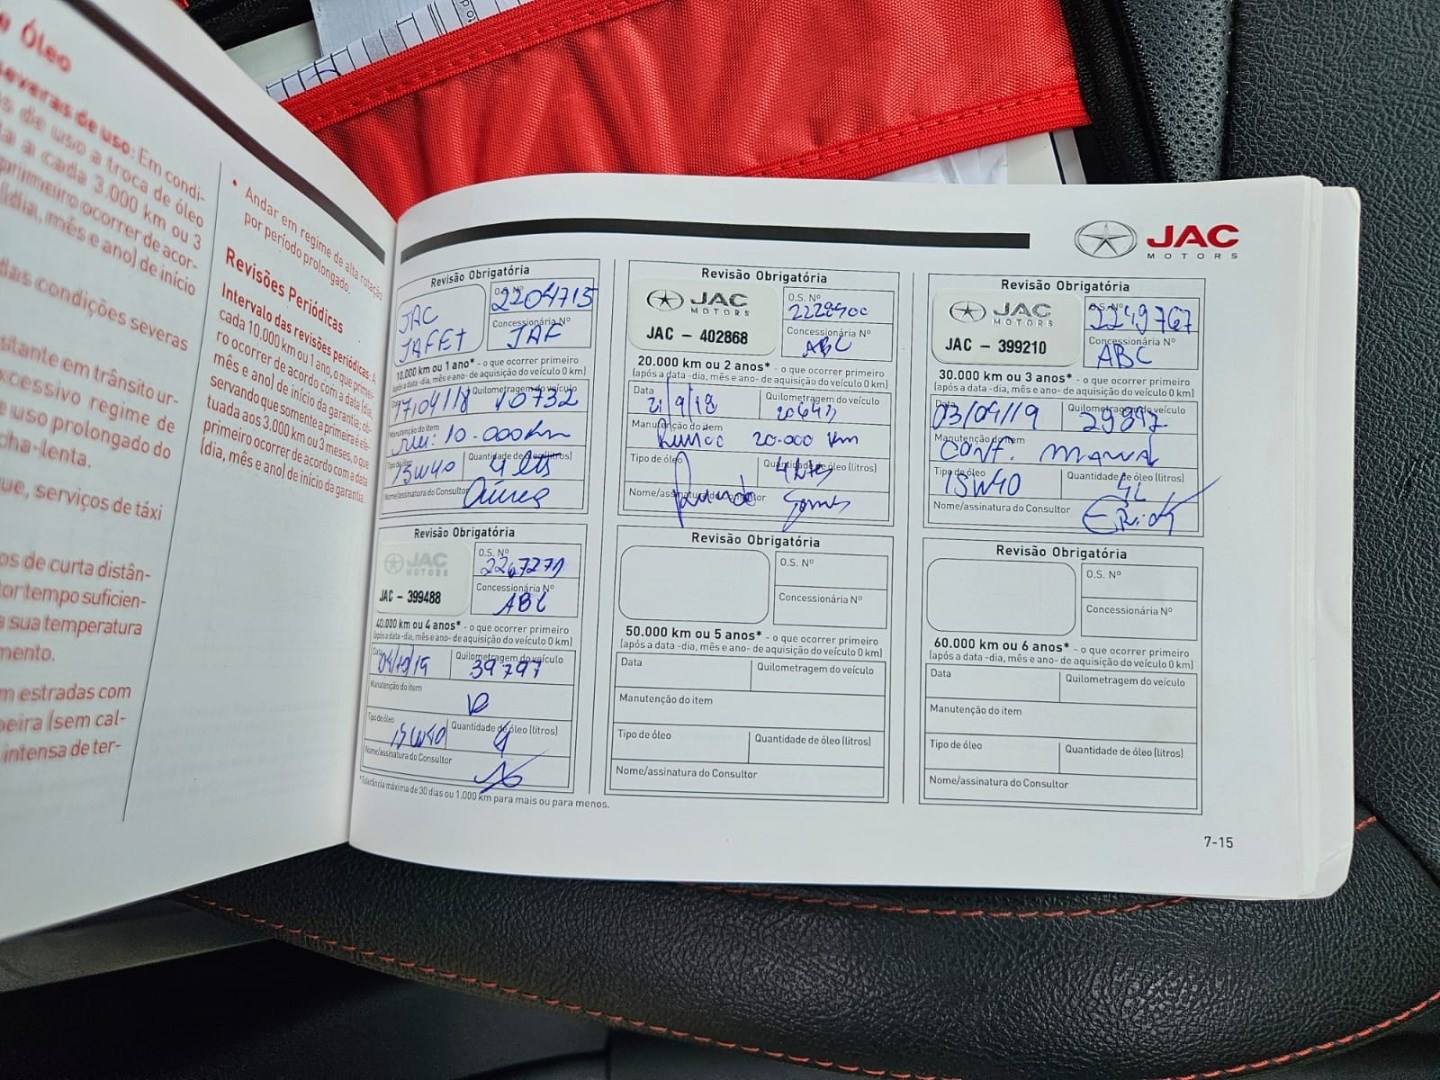 e Óleo
severas de uso: Em condi-
s de uso a troca de óleo
a a cada 3.000 km ou 3
primeiro ocorrer de acor-
(dia, mês e ano) de início
das condições severas
sitante em trânsito ur-
xcessivo regime de
e uso prolongado do
cha-lenta.
que, serviços de táxi
os de curta distân-
tor tempo suficien-
a sua temperatura
mento.
m estradas com
oeira (sem cal-
intensa de ter-
• Andar em regime de alta rotação
por período prolongado.
Revisões Periódicas
Intervalo das revisões periódicas: A
cada 10.000 km ou 1 ano, o que primei-
ro ocorrer de acordo com a data (dia,
mês e ano) de início da garantia; ob-
servando que somente a primeira é efe-
tuada aos 3.000 km ou 3 meses, o que
primeiro ocorrer de acordo com a data
(dia, mês e ano) de início da garantia.
JAC
MOTORS
Revisão Obrigatória
JAC
JAFET
O.S. Nº
2204715
Concessionária Nº
JAF
10.000 km ou 1 ano* - o que ocorrer primeiro
(após a data -dia, mês e ano- de aquisição do veículo 0 km)
Data
17/04/18
Quilometragem do veículo
10732
Manutenção do item
Rev: 10.000km
Tipo de óleo
15W40
Quantidade de óleo (litros)
4 lts
Nome/assinatura do Consultor
Revisão Obrigatória
JAC
MOTORS
JAC - 402868
O.S. Nº
Concessionária Nº
ABC
20.000 km ou 2 anos* - o que ocorrer primeiro
(após a data -dia, mês e ano- de aquisição do veículo 0 km)
Data
21/9/18
Quilometragem do veículo
Manutenção do item
20.000 km
Tipo de óleo
Quantidade de óleo (litros)
Nome/assinatura do Consultor
Revisão Obrigatória
JAC
MOTORS
JAC - 399210
O.S. Nº
2249767
Concessionária Nº
ABC
30.000 km ou 3 anos* - o que ocorrer primeiro
(após a data -dia, mês e ano- de aquisição do veículo 0 km)
Data
03/04/19
Quilometragem do veículo
29897
Manutenção do item
Conf. manual
Tipo de óleo
15W40
Quantidade de óleo (litros)
4L
Nome/assinatura do Consultor
Erick
Revisão Obrigatória
JAC
MOTORS
JAC - 399488
O.S. Nº
Concessionária Nº
ABC
40.000 km ou 4 anos* - o que ocorrer primeiro
(após a data -dia, mês e ano- de aquisição do veículo 0 km)
Data
Quilometragem do veículo
39797
Manutenção do item
Tipo de óleo
15W40
Quantidade de óleo (litros)
4
Nome/assinatura do Consultor
*Tolerância máxima de 30 dias ou 1.000 km para mais ou para menos.
Revisão Obrigatória
O.S. Nº
Concessionária Nº
50.000 km ou 5 anos* - o que ocorrer primeiro
(após a data -dia, mês e ano- de aquisição do veículo 0 km)
Data
Quilometragem do veículo
Manutenção do item
Tipo de óleo
Quantidade de óleo (litros)
Nome/assinatura do Consultor
Revisão Obrigatória
O.S. Nº
Concessionária Nº
60.000 km ou 6 anos* - o que ocorrer primeiro
(após a data -dia, mês e ano- de aquisição do veículo 0 km)
Data
Quilometragem do veículo
Manutenção do item
Tipo de óleo
Quantidade de óleo (litros)
Nome/assinatura do Consultor
7-15